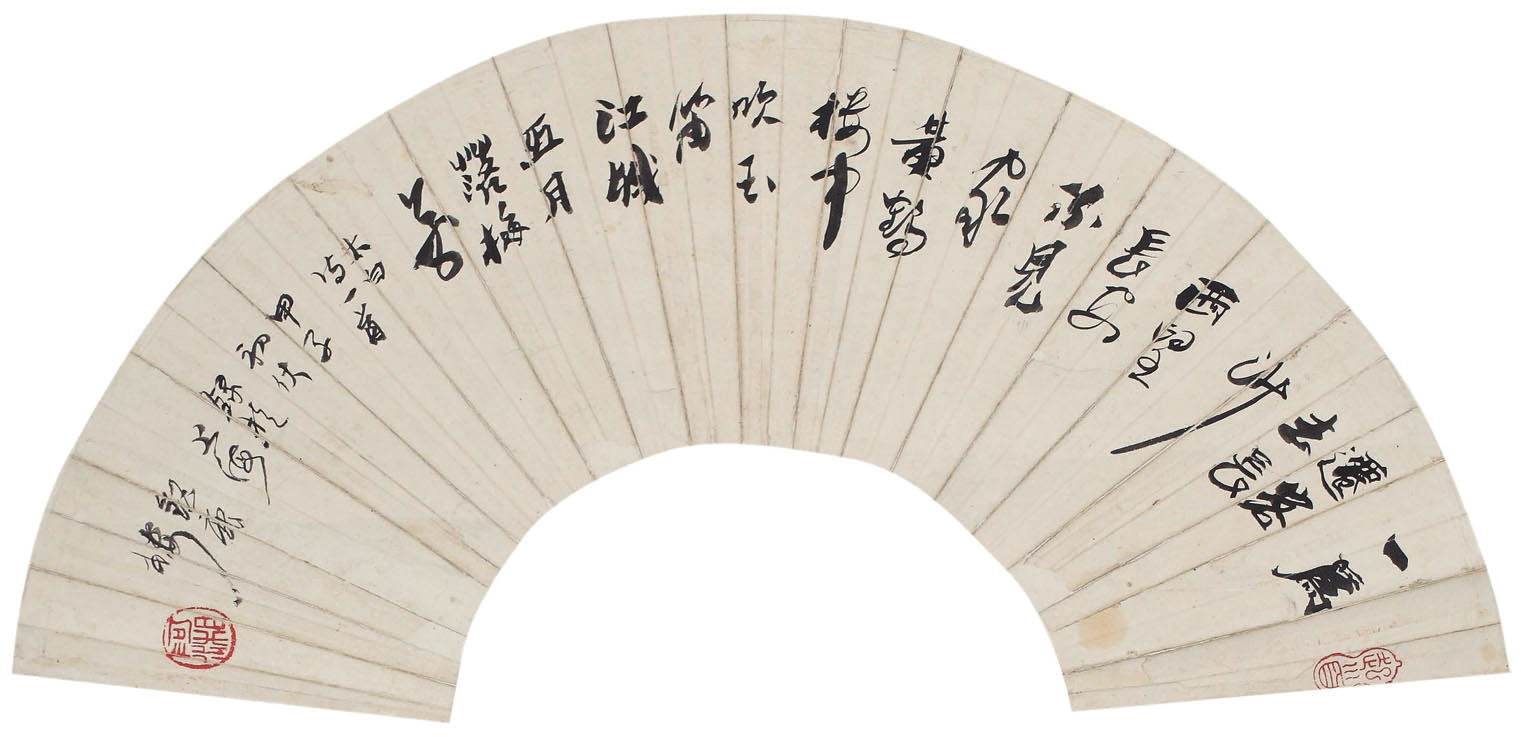 一為
遷客
去長
沙
西望
長安
不見
家
黃鶴
樓中
吹玉
笛
江城
五月
落梅
花
太白
詩一首
甲子
初伏
錄於
上海